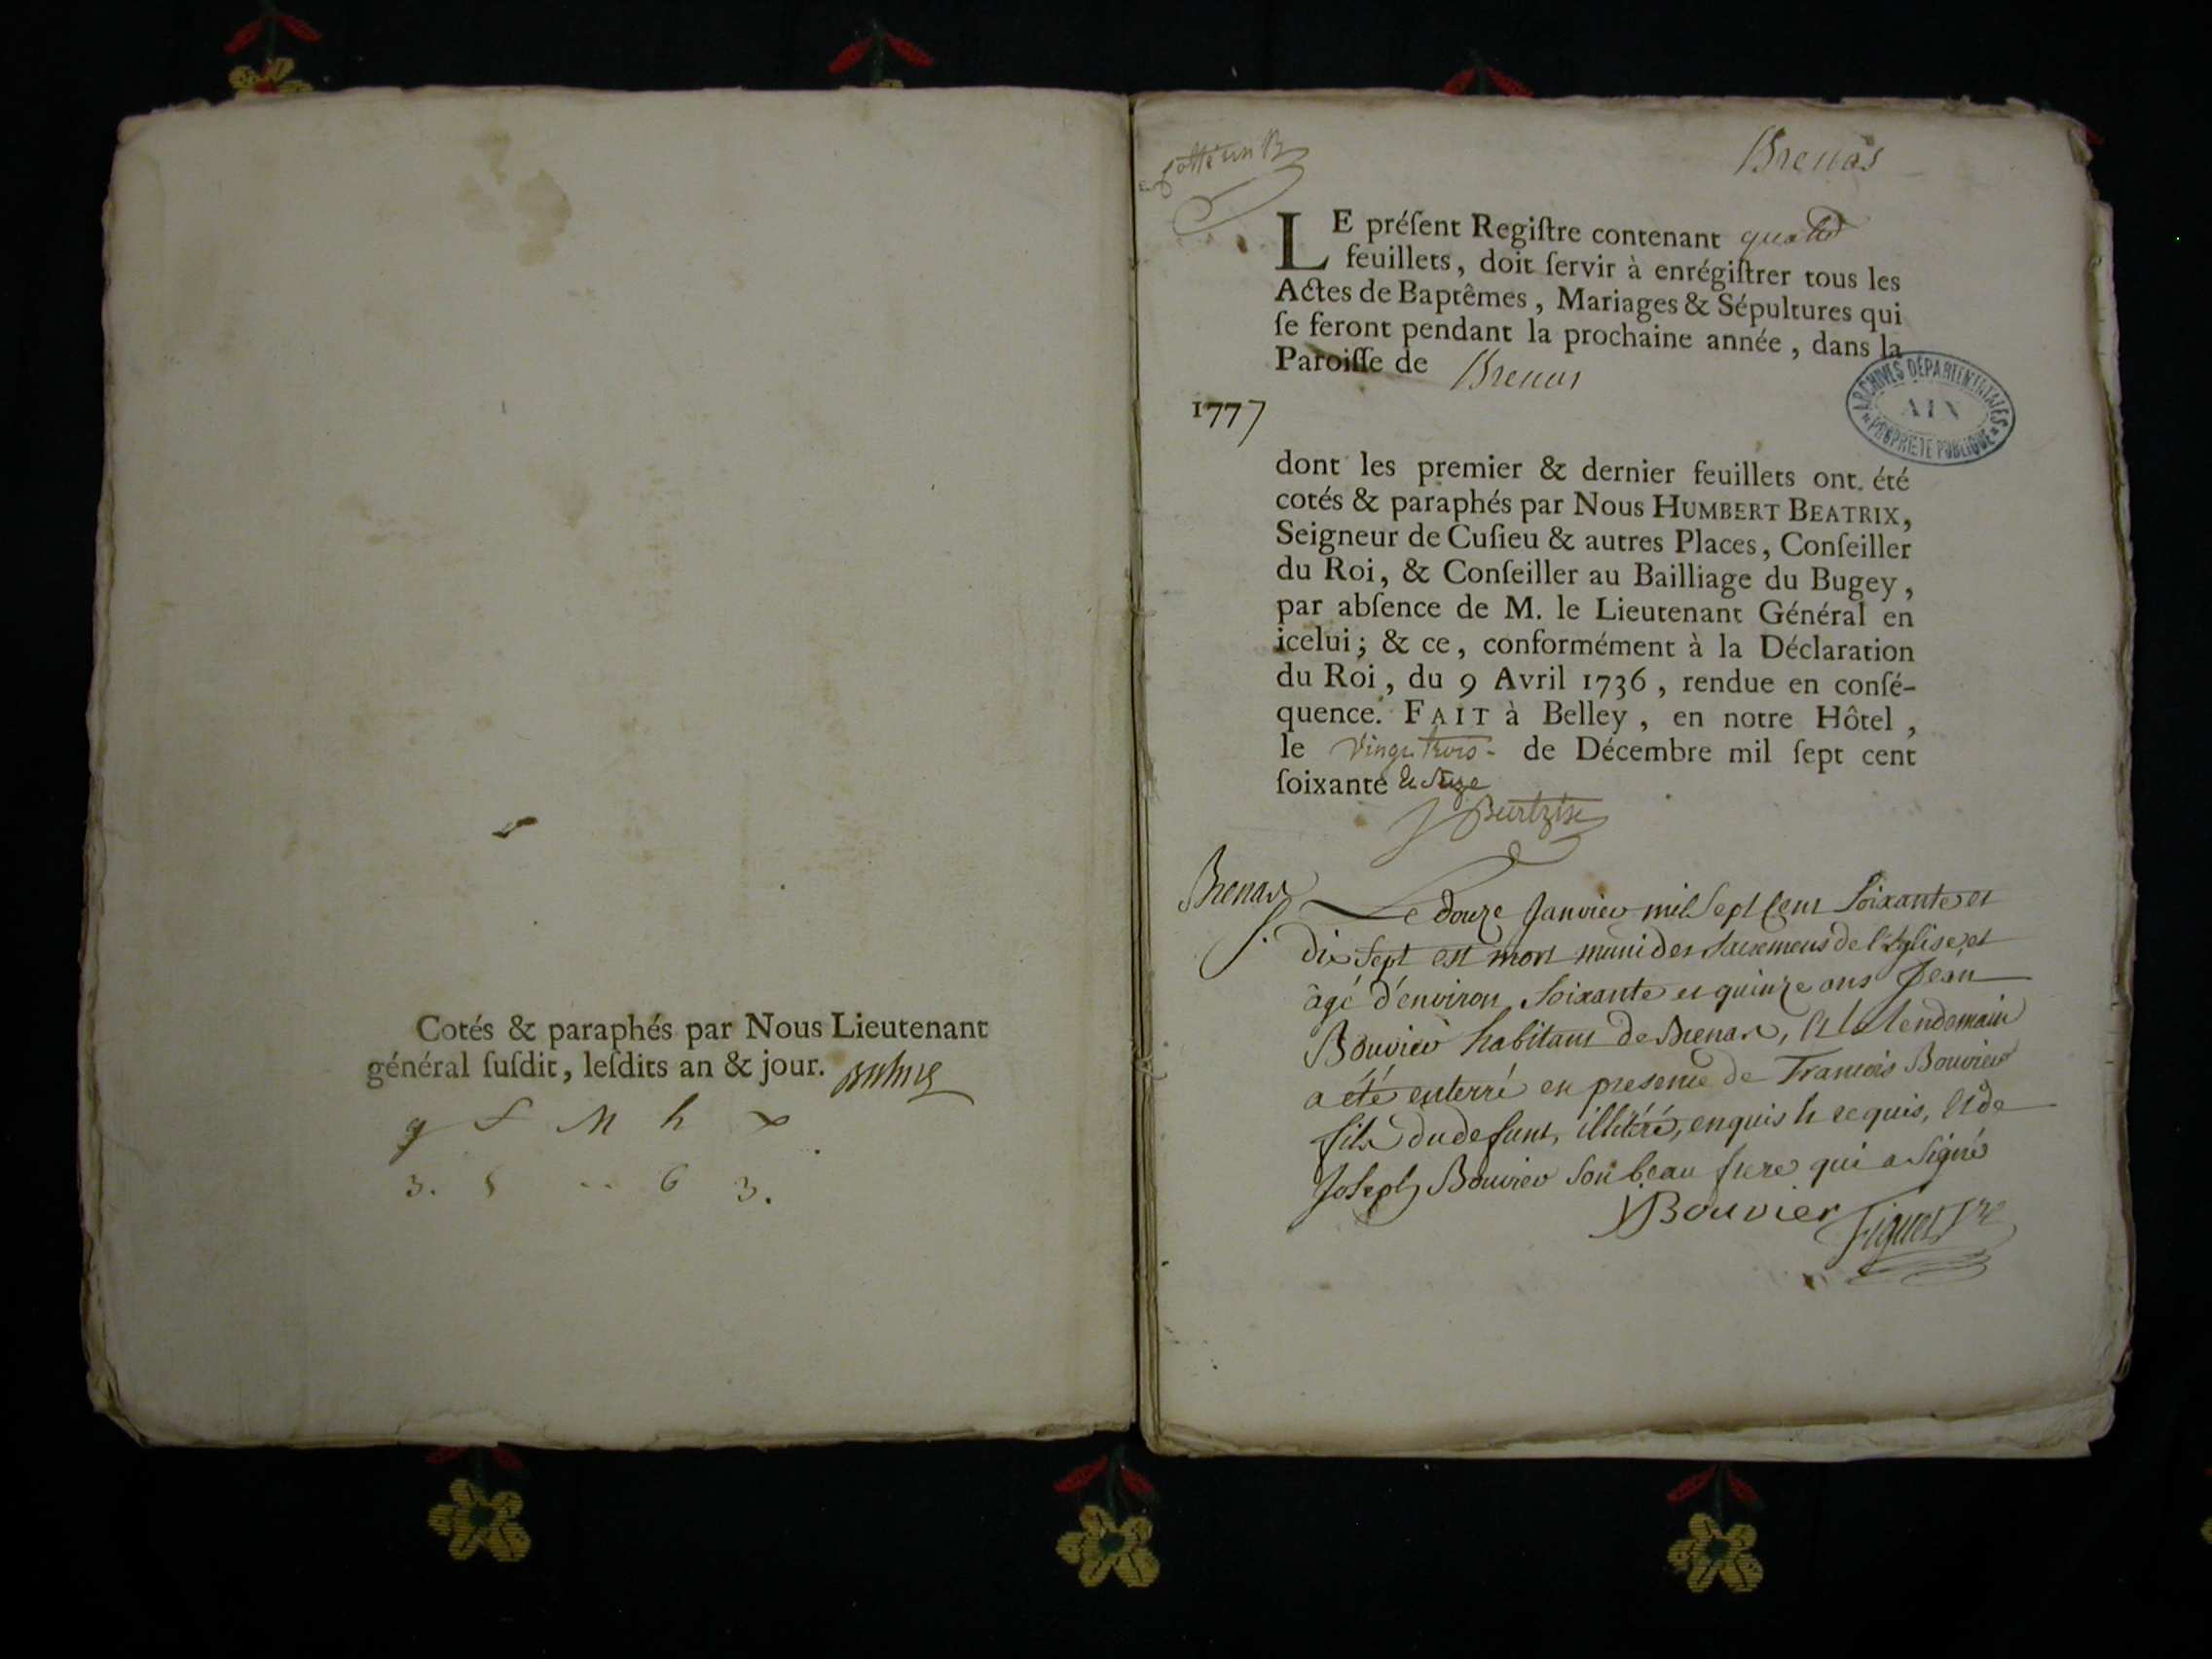 Cotés & paraphés par Nous Lieutenant
général ſuſdit, leſdits an & jour.
g f M h
3. 8 .. 6 3.
Brenas
LE préſent Regiſtre contenant quatre
feuillets, doit ſervir à enrégiſtrer tous les
Actes de Baptêmes, Mariages & Sépultures qui
ſe feront pendant la prochaine année, dans la
Paroiſſe de Brenas
1777
ARCHIVES DÉPARTEMENTALES
AIN
PROPRIETE PUBLIQUE
dont les premier & dernier feuillets ont été
cotés & paraphés par Nous HUMBERT BEATRIX,
Seigneur de Cuſieu & autres Places, Conſeiller
du Roi, & Conſeiller au Bailliage du Bugey,
par abſence de M. le Lieutenant Général en
icelui; & ce, conformément à la Déclaration
du Roi, du 9 Avril 1736, rendue en conſé-
quence. FAIT à Belley, en notre Hôtel,
le vingt trois de Décembre mil ſept cent
ſoixante & seize
Brenas Le douze Janvier mil Sept Cent Soixante et
S. dix Sept est mort muni des Sacremens de l'Eglise, et
âgé d'environ Soixante et quinze ans Jean
Bouvier habitant de Brenas, et le lendemain
a été enterré en presence de Francois Bouvier
fils du defunt, illitéré, enquis et requis, et de
Joseph Bouvier Son beau frere qui a Signé
JBouvier